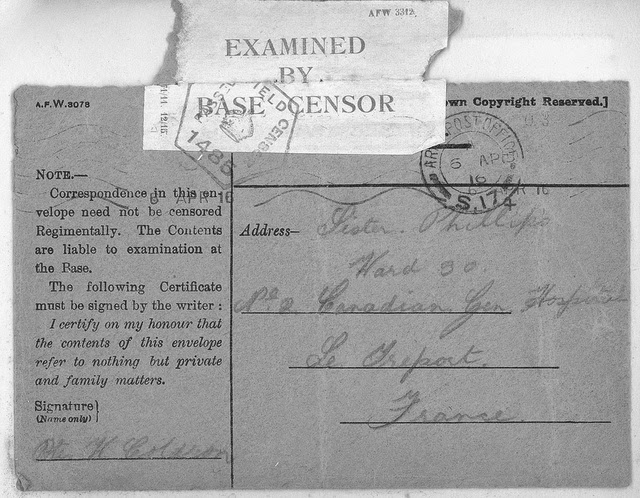 AFW 3312.
EXAMINED
BY
BASE CENSOR
A.F.W.3078
own Copyright Reserved.]
PASSED FIELD CENSOR
1486
ARMY POST OFFICE
5 AP
16
S.17
APR 16
NOTE.—
Correspondence in this en-
velope need not be censored
Regimentally. The Contents
are liable to examination at
the Base.
The following Certificate
must be signed by the writer :
I certify on my honour that
the contents of this envelope
refer to nothing but private
and family matters.
Signature}
(Name only)
Pte W Coldron
Address— Sister. Phillips
Ward 30.
No 2 Canadian Gen Hospital
Le Treport.
France.